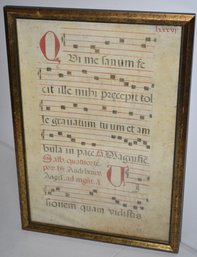 lxxxvi
Qui me sanum fe
cit ille mihi precepit tol
le grauatum tuum et am
bula in pace A Magnificat
Sabb.
ad mag. A
sionem quam vidistis